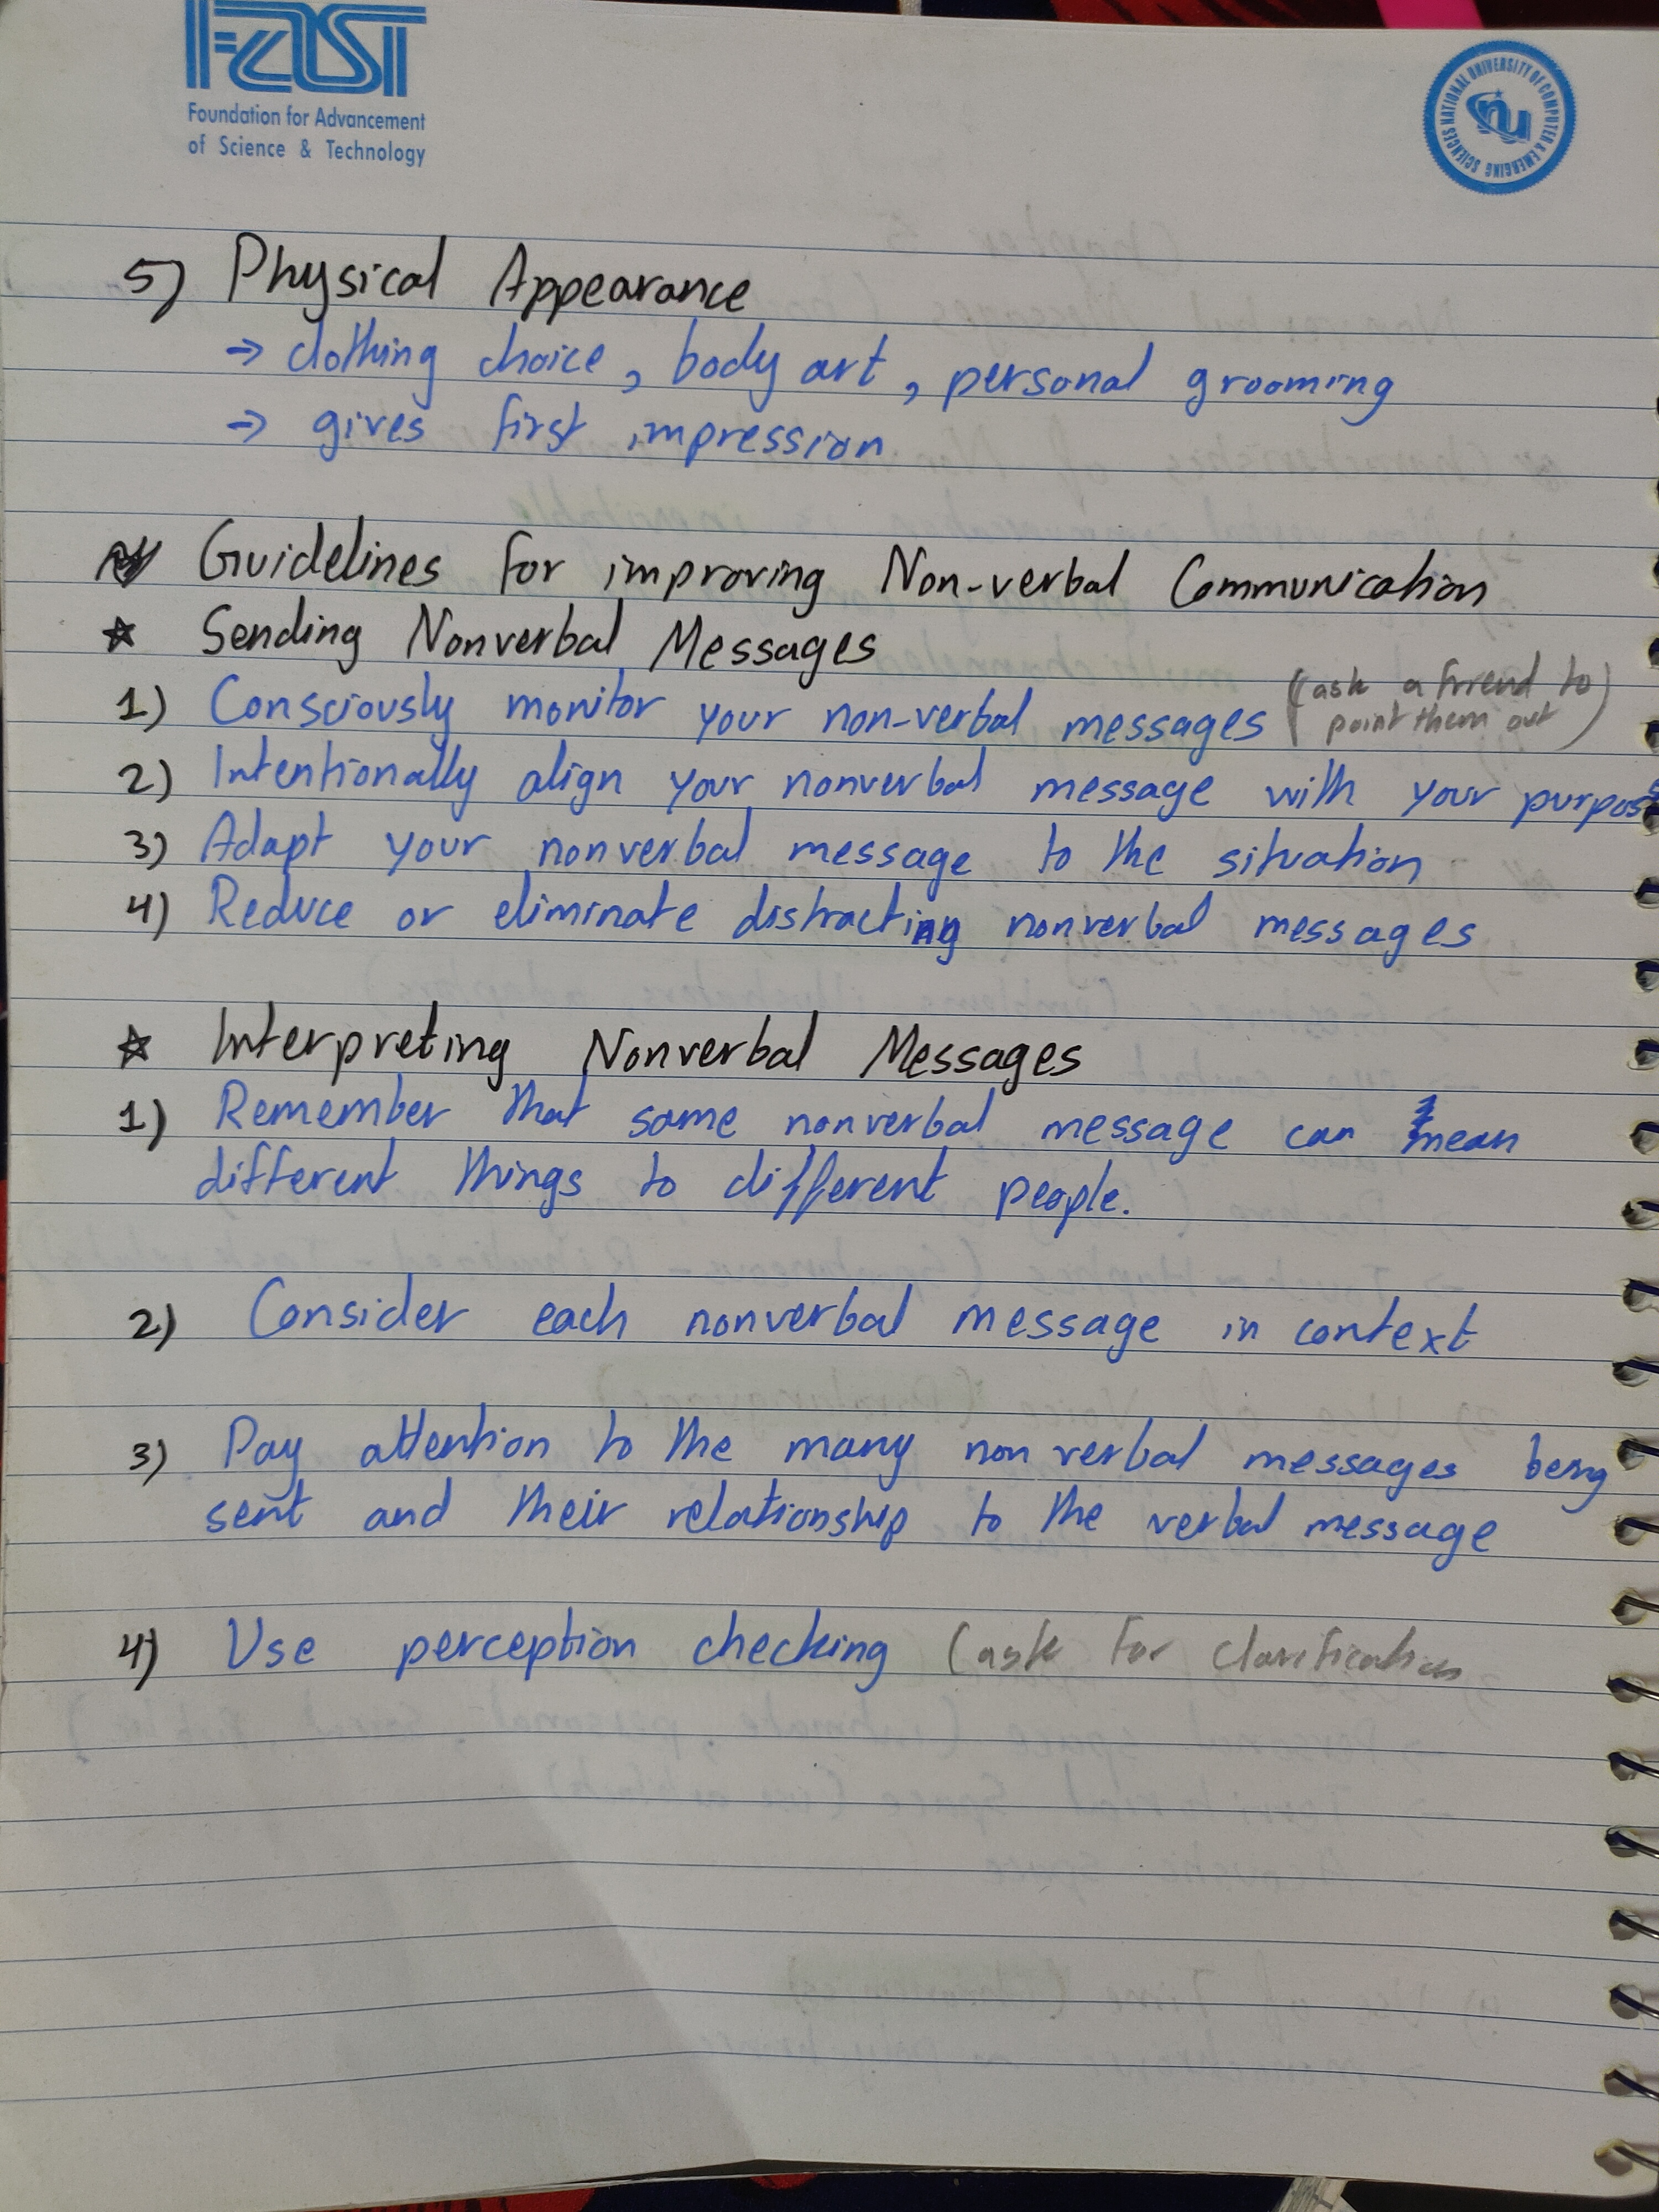 FAST
Foundation for Advancement
of Science & Technology
NATIONAL UNIVERSITY OF COMPUTER & EMERGING SCIENCES
nu
5) Physical Appearance
→ clothing choice, body art, personal grooming
→ gives first impression
Guidelines for improving Non-verbal Communication
☆ Sending Nonverbal Messages
1) Consciously monitor your non-verbal messages (ask a friend to
point them out)
2) Intentionally align your nonverbal message with your purpos
3) Adapt your nonverbal message to the situation
4) Reduce or eliminate distracting nonverbal messages
☆ Interpreting Nonverbal Messages
1) Remember that same nonverbal message can mean
different things to different people.
2) Consider each nonverbal message in context
3) Pay attention to the many non verbal messages being
sent and their relationship to the verbal message
4) Use perception checking (ask for clarification